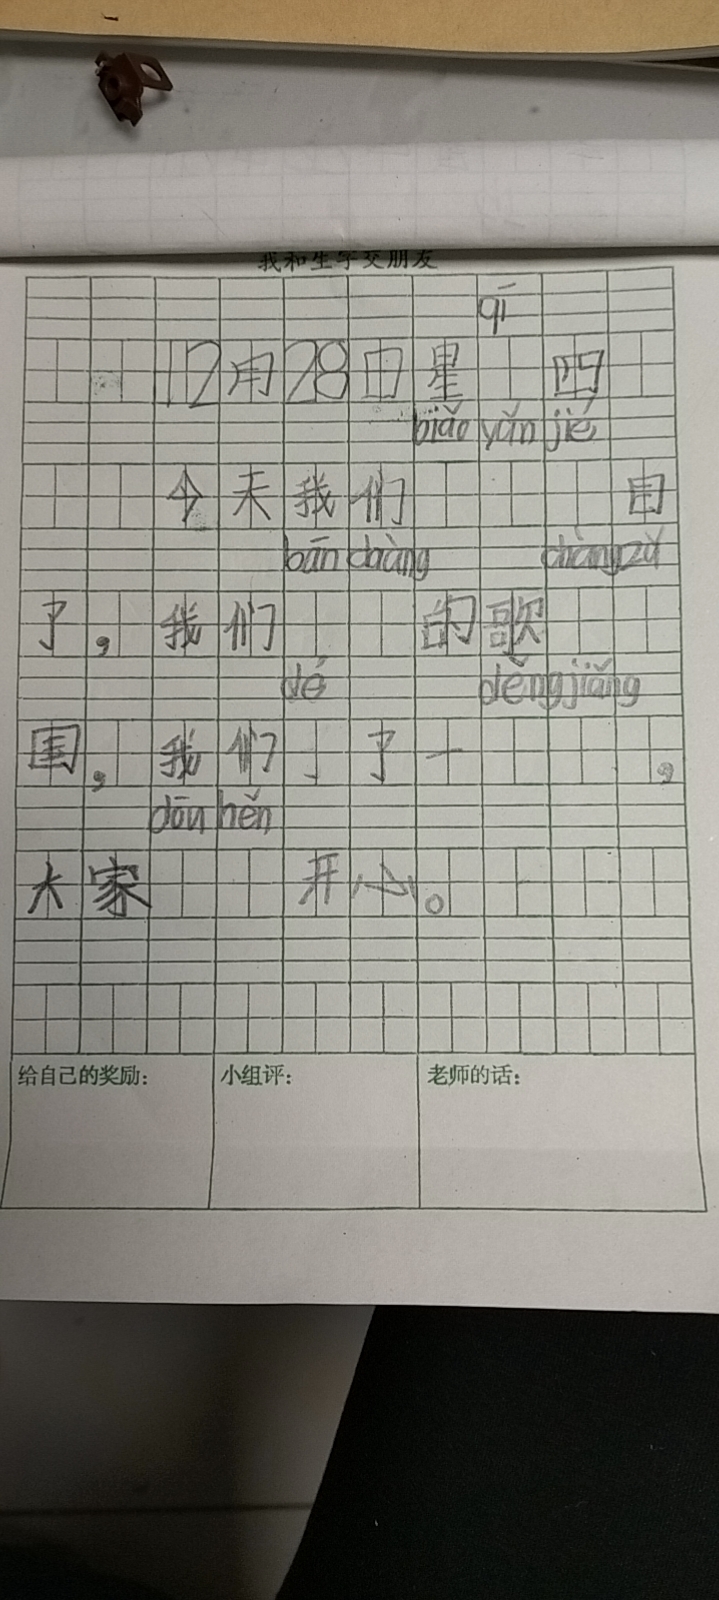 我和生字交朋友
qī
12月28日星 四
biǎo yǎn jié
今天我们 田
bān chàng chàng zǔ
了,我们 的歌
dé děng jiǎng
国,我们 了一 ,
dōu hěn
大家 开心。
给自己的奖励: 小组评: 老师的话: